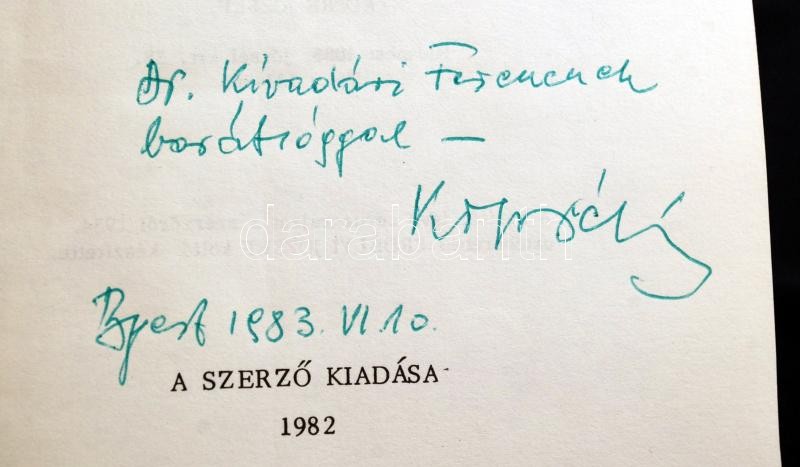 Dr. Kívadári Ferencnek
barátsággal —
Bpest 1983. VI. 10.
A SZERZŐ KIADÁSA
1982
darabanth